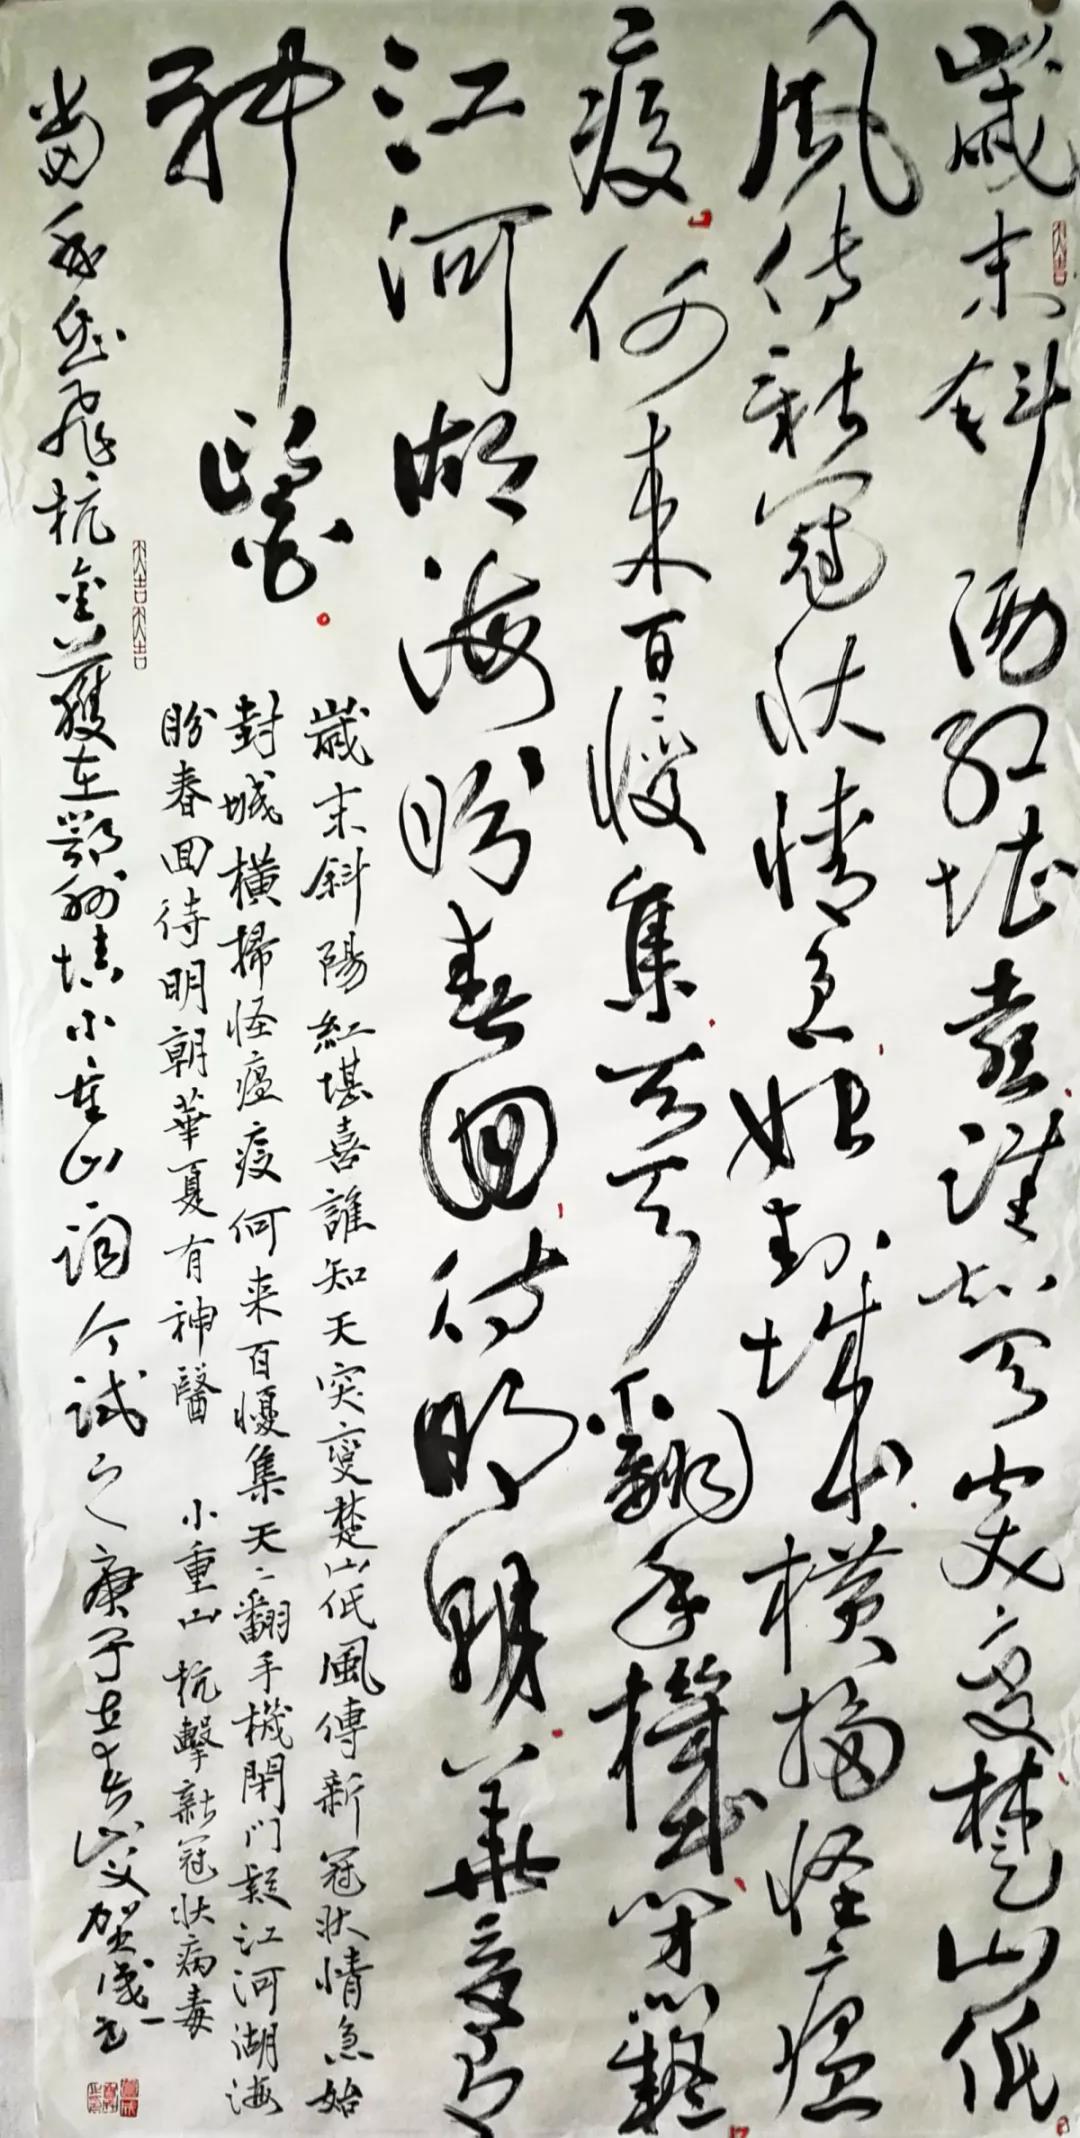 歲末斜陽紅堪喜誰知天突變楚山低
風傳新冠狀情急始封城横掃怪瘟
疫何来百憂集天天翻手機閉門疑
江河湖海盼春回待明朝華夏有
神醫
歲末斜陽紅堪喜誰知天突變楚山低風傳新冠狀情急始
封城横掃怪瘟疫何来百憂集天〻翻手機閉門疑江河湖海
盼春回待明朝華夏有神醫 小重山 抗擊新冠狀病毒
當年岳飛抗金薩在鄂州填小重山詞今試之庚子立春